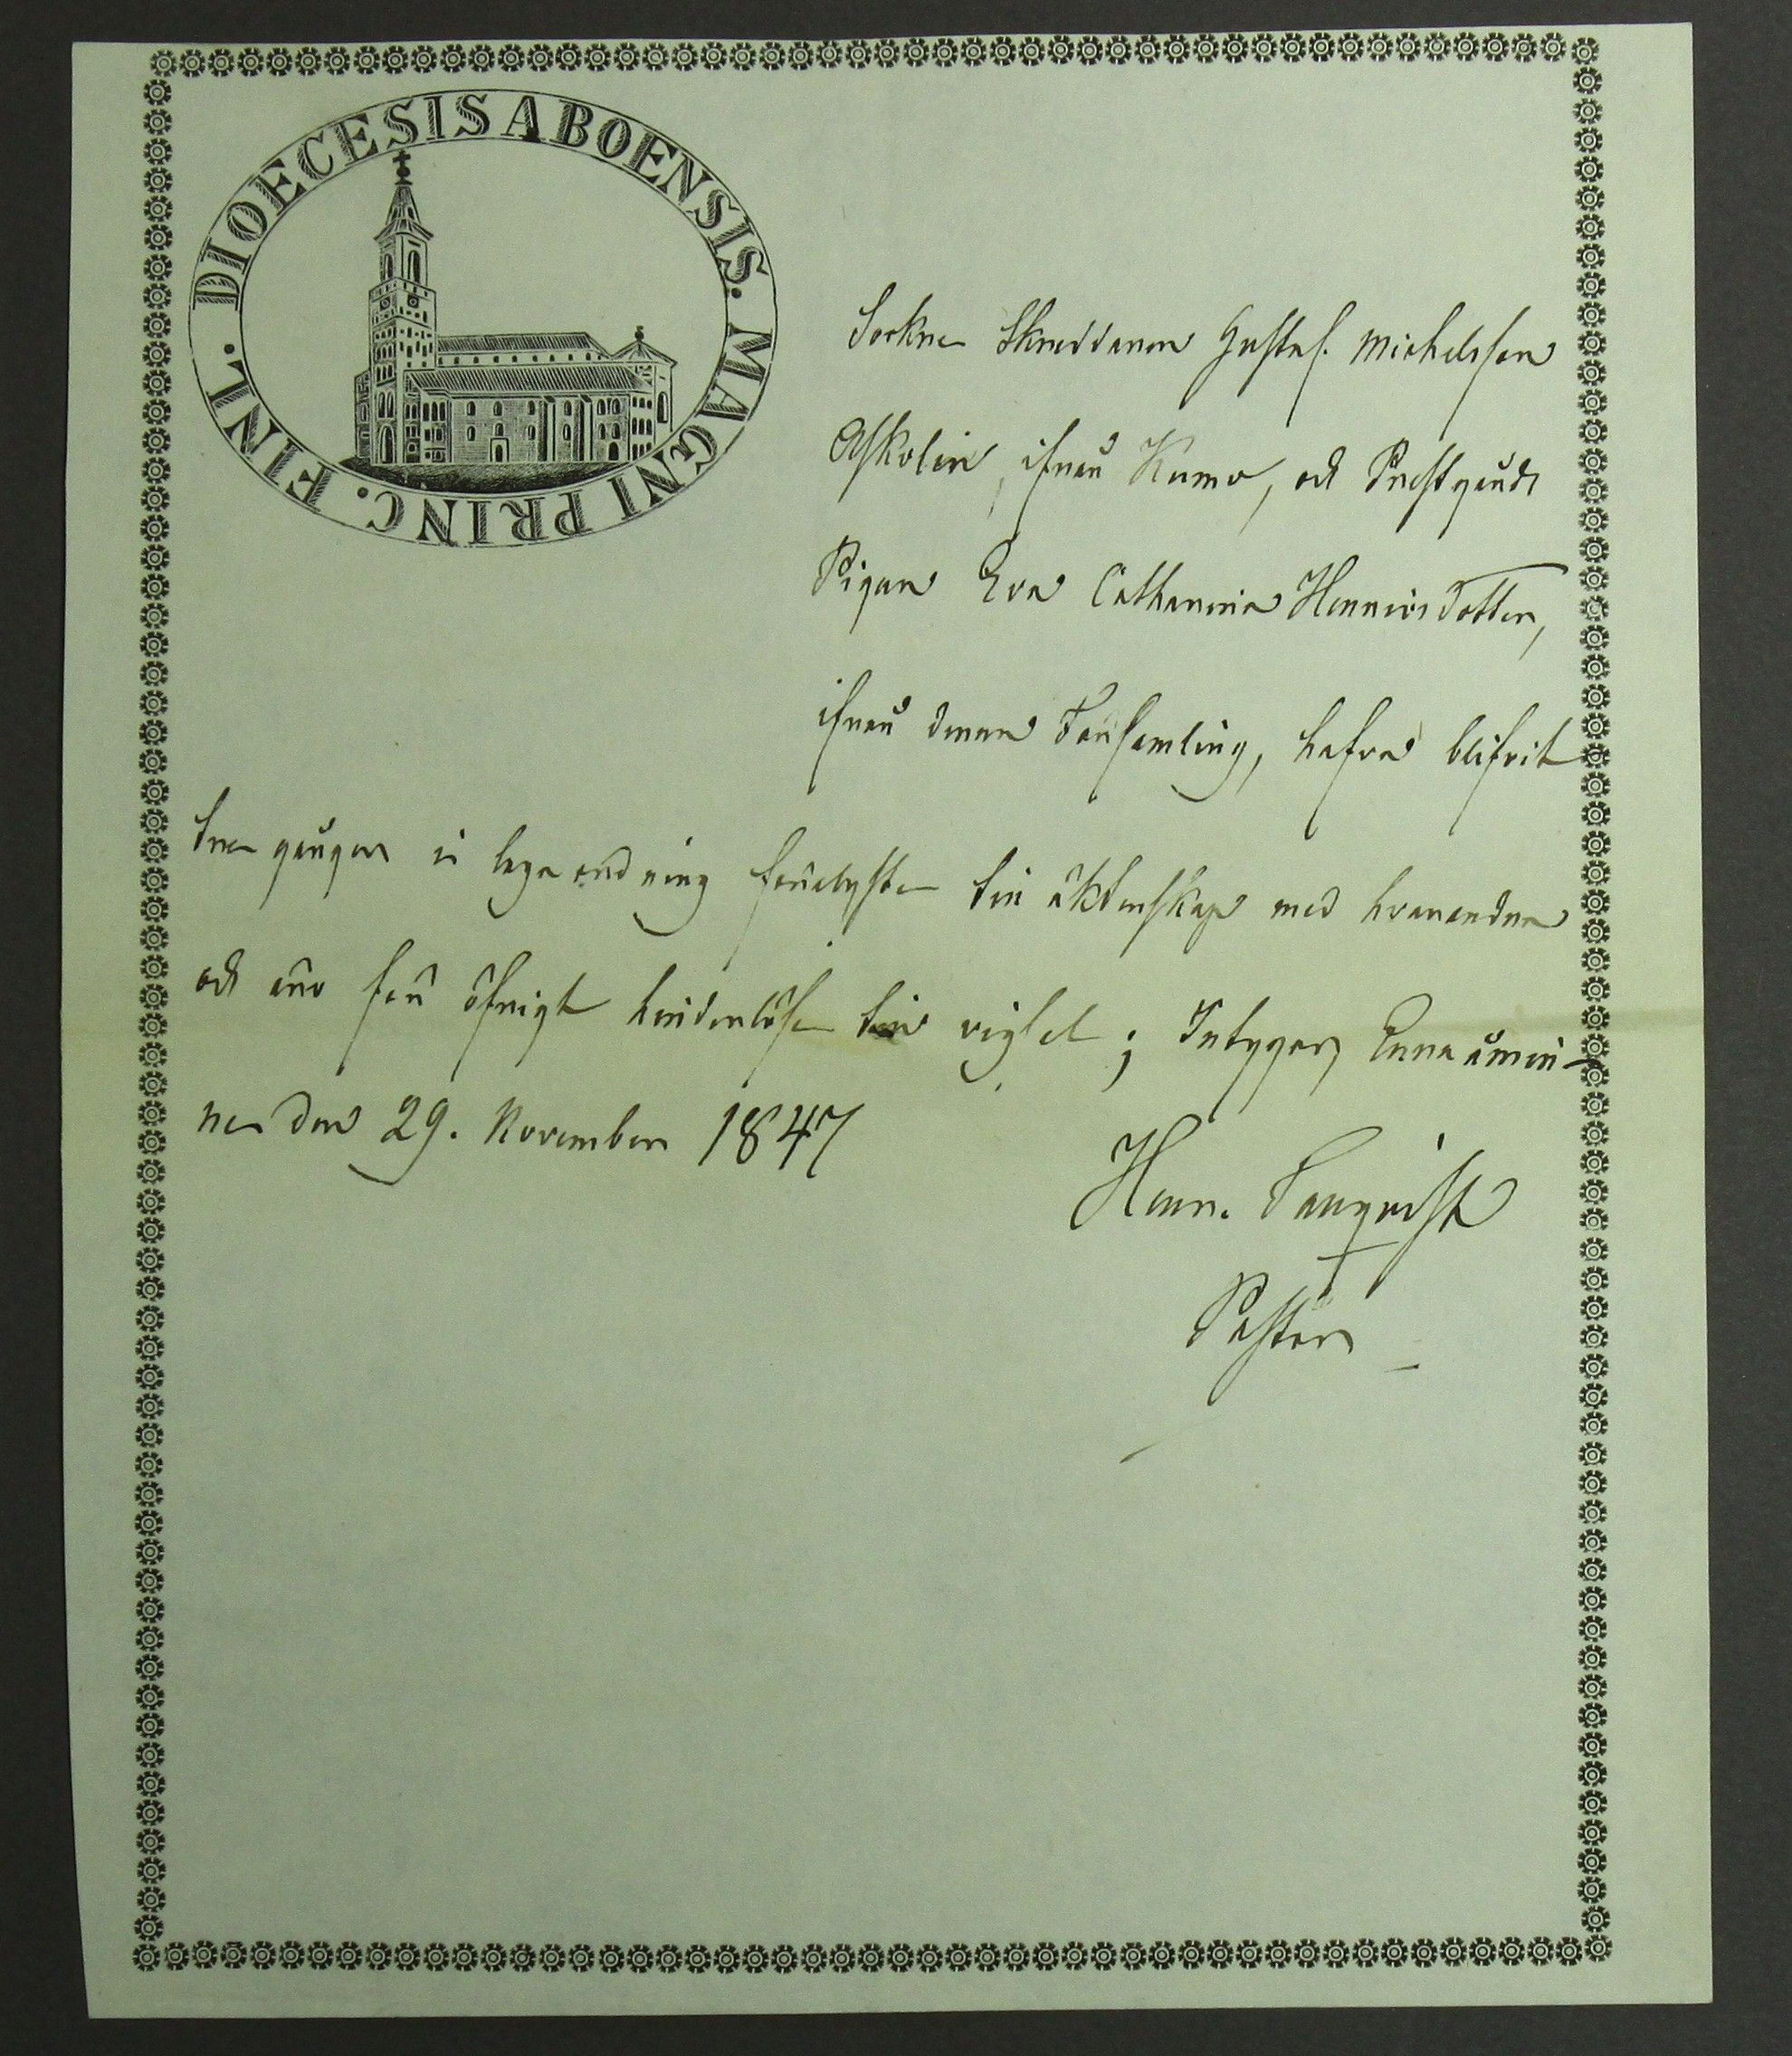 DIOECESIS ABOENSIS. MAGNI PRINC. FINL.
Sockne Skreddaren Gustaf Michelsson
Askolin, ifrån Kumo, och Prestgårds
Pigan Eva Catharina Henricsdotter,
ifrån denna Församling, hafva blifvit
tre gånger i laga ordning förelyste till äktenskap med hvarandra
och äro för öfrigt hinderlöse till vigsel; Intygar, Euraåmin-
ne den 29. November 1847
Henr.
Pastor